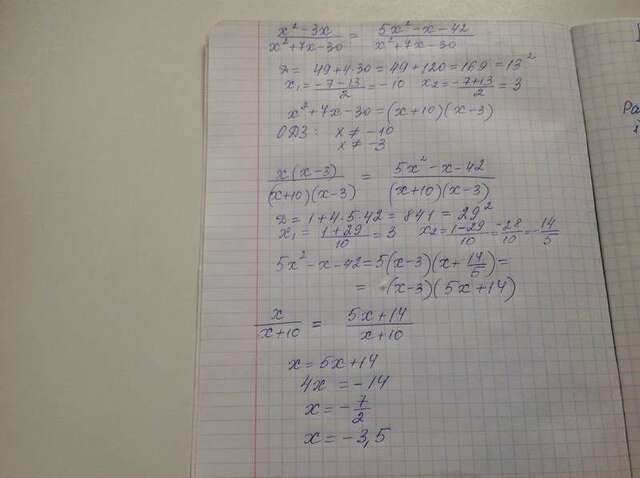 x² - 3x / x² + 7x - 30 = 5x² - x - 42 / x² + 7x - 30
D = 49 + 4·30 = 49 + 120 = 169 = 13²
x₁ = -7-13 / 2 = -10 x₂ = -7+13 / 2 = 3
x² + 7x - 30 = (x+10)(x-3)
ОДЗ: x ≠ -10
x ≠ -3
x(x-3) / (x+10)(x-3) = 5x² - x - 42 / (x+10)(x-3)
D = 1 + 4·5·42 = 841 = 29²
x₁ = 1+29 / 10 = 3 x₂ = 1-29 / 10 = -28 / 10 = -14 / 5
5x² - x - 42 = 5(x-3)(x + 14/5) =
= (x-3)(5x+14)
x / x+10 = 5x+14 / x+10
x = 5x + 14
4x = -14
x = -7/2
x = -3,5
Ра